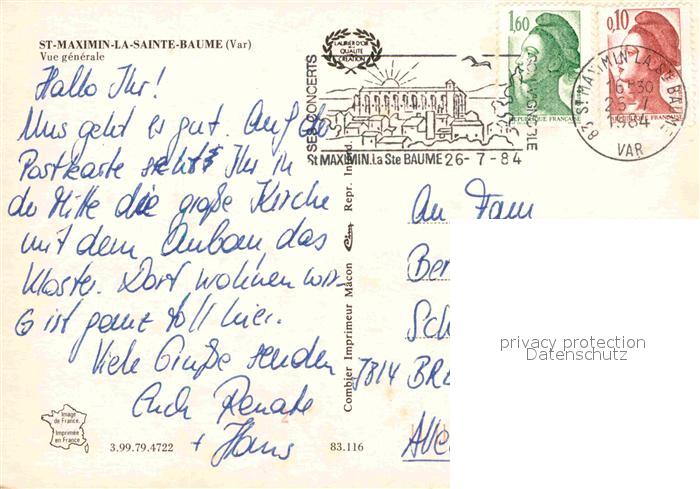 ST-MAXIMIN-LA-SAINTE-BAUME (Var)
Vue générale
Hallo Ihr!
Uns geht es gut. Auf der
Postkarte seht Ihr in
der Mitte die große Kirche
mit dem Anbau das
Kloster. Dort wohnen wir.
Es ist ganz toll hier.
Viele Grüße senden
Euch Renate
+ Hans
Image de France
Imprimée en France
3.99.79.4722
83.116
Combier Imprimeur Mâcon Cim Repr. Interd.
LAURIER D'OR
QUALITE
CREATION
SES CONCERTS
St MAXIMIN.La Ste BAUME 26-7-84
1,60
REPUBLIQUE FRANÇAISE
0,10
REPUBLIQUE FRANÇAISE
83 ST MAXIMIN LA STE BAUME
16H30
26-7
1984
VAR
An Fam
Ber
Sch
7814 BRE
privacy protection
Datenschutz